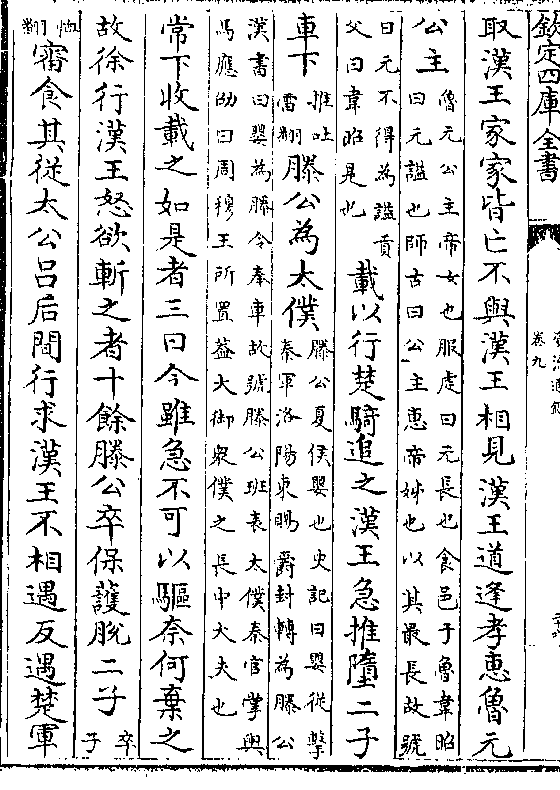 欽定四庫全書
卷九
取漢王家家皆亡不與漢王相見漢王道逢孝惠魯元
公主魯元公主帝女也服虔曰元長也食邑于魯韋昭
曰元謚也師古曰公主惠帝姊也以其最長故號
曰元不得為謚貢
父曰韋昭是也載以行楚騎追之漢王急推墮二子
車下推吐
雷翻滕公為太僕滕公夏侯嬰也史記曰嬰從擊
秦軍洛陽東賜爵封轉為滕公
漢書曰嬰為滕令奉車故號滕公班表太僕秦官掌輿
馬應劭曰周穆王所置葢大御衆僕之長中大夫也
常下收載之如是者三曰今雖急不可以驅奈何棄之
故徐行漢王怒欲斬之者十餘滕公卒保護脫二子卒
子
恤
翻審食其從太公呂后間行求漢王不相遇反遇楚軍